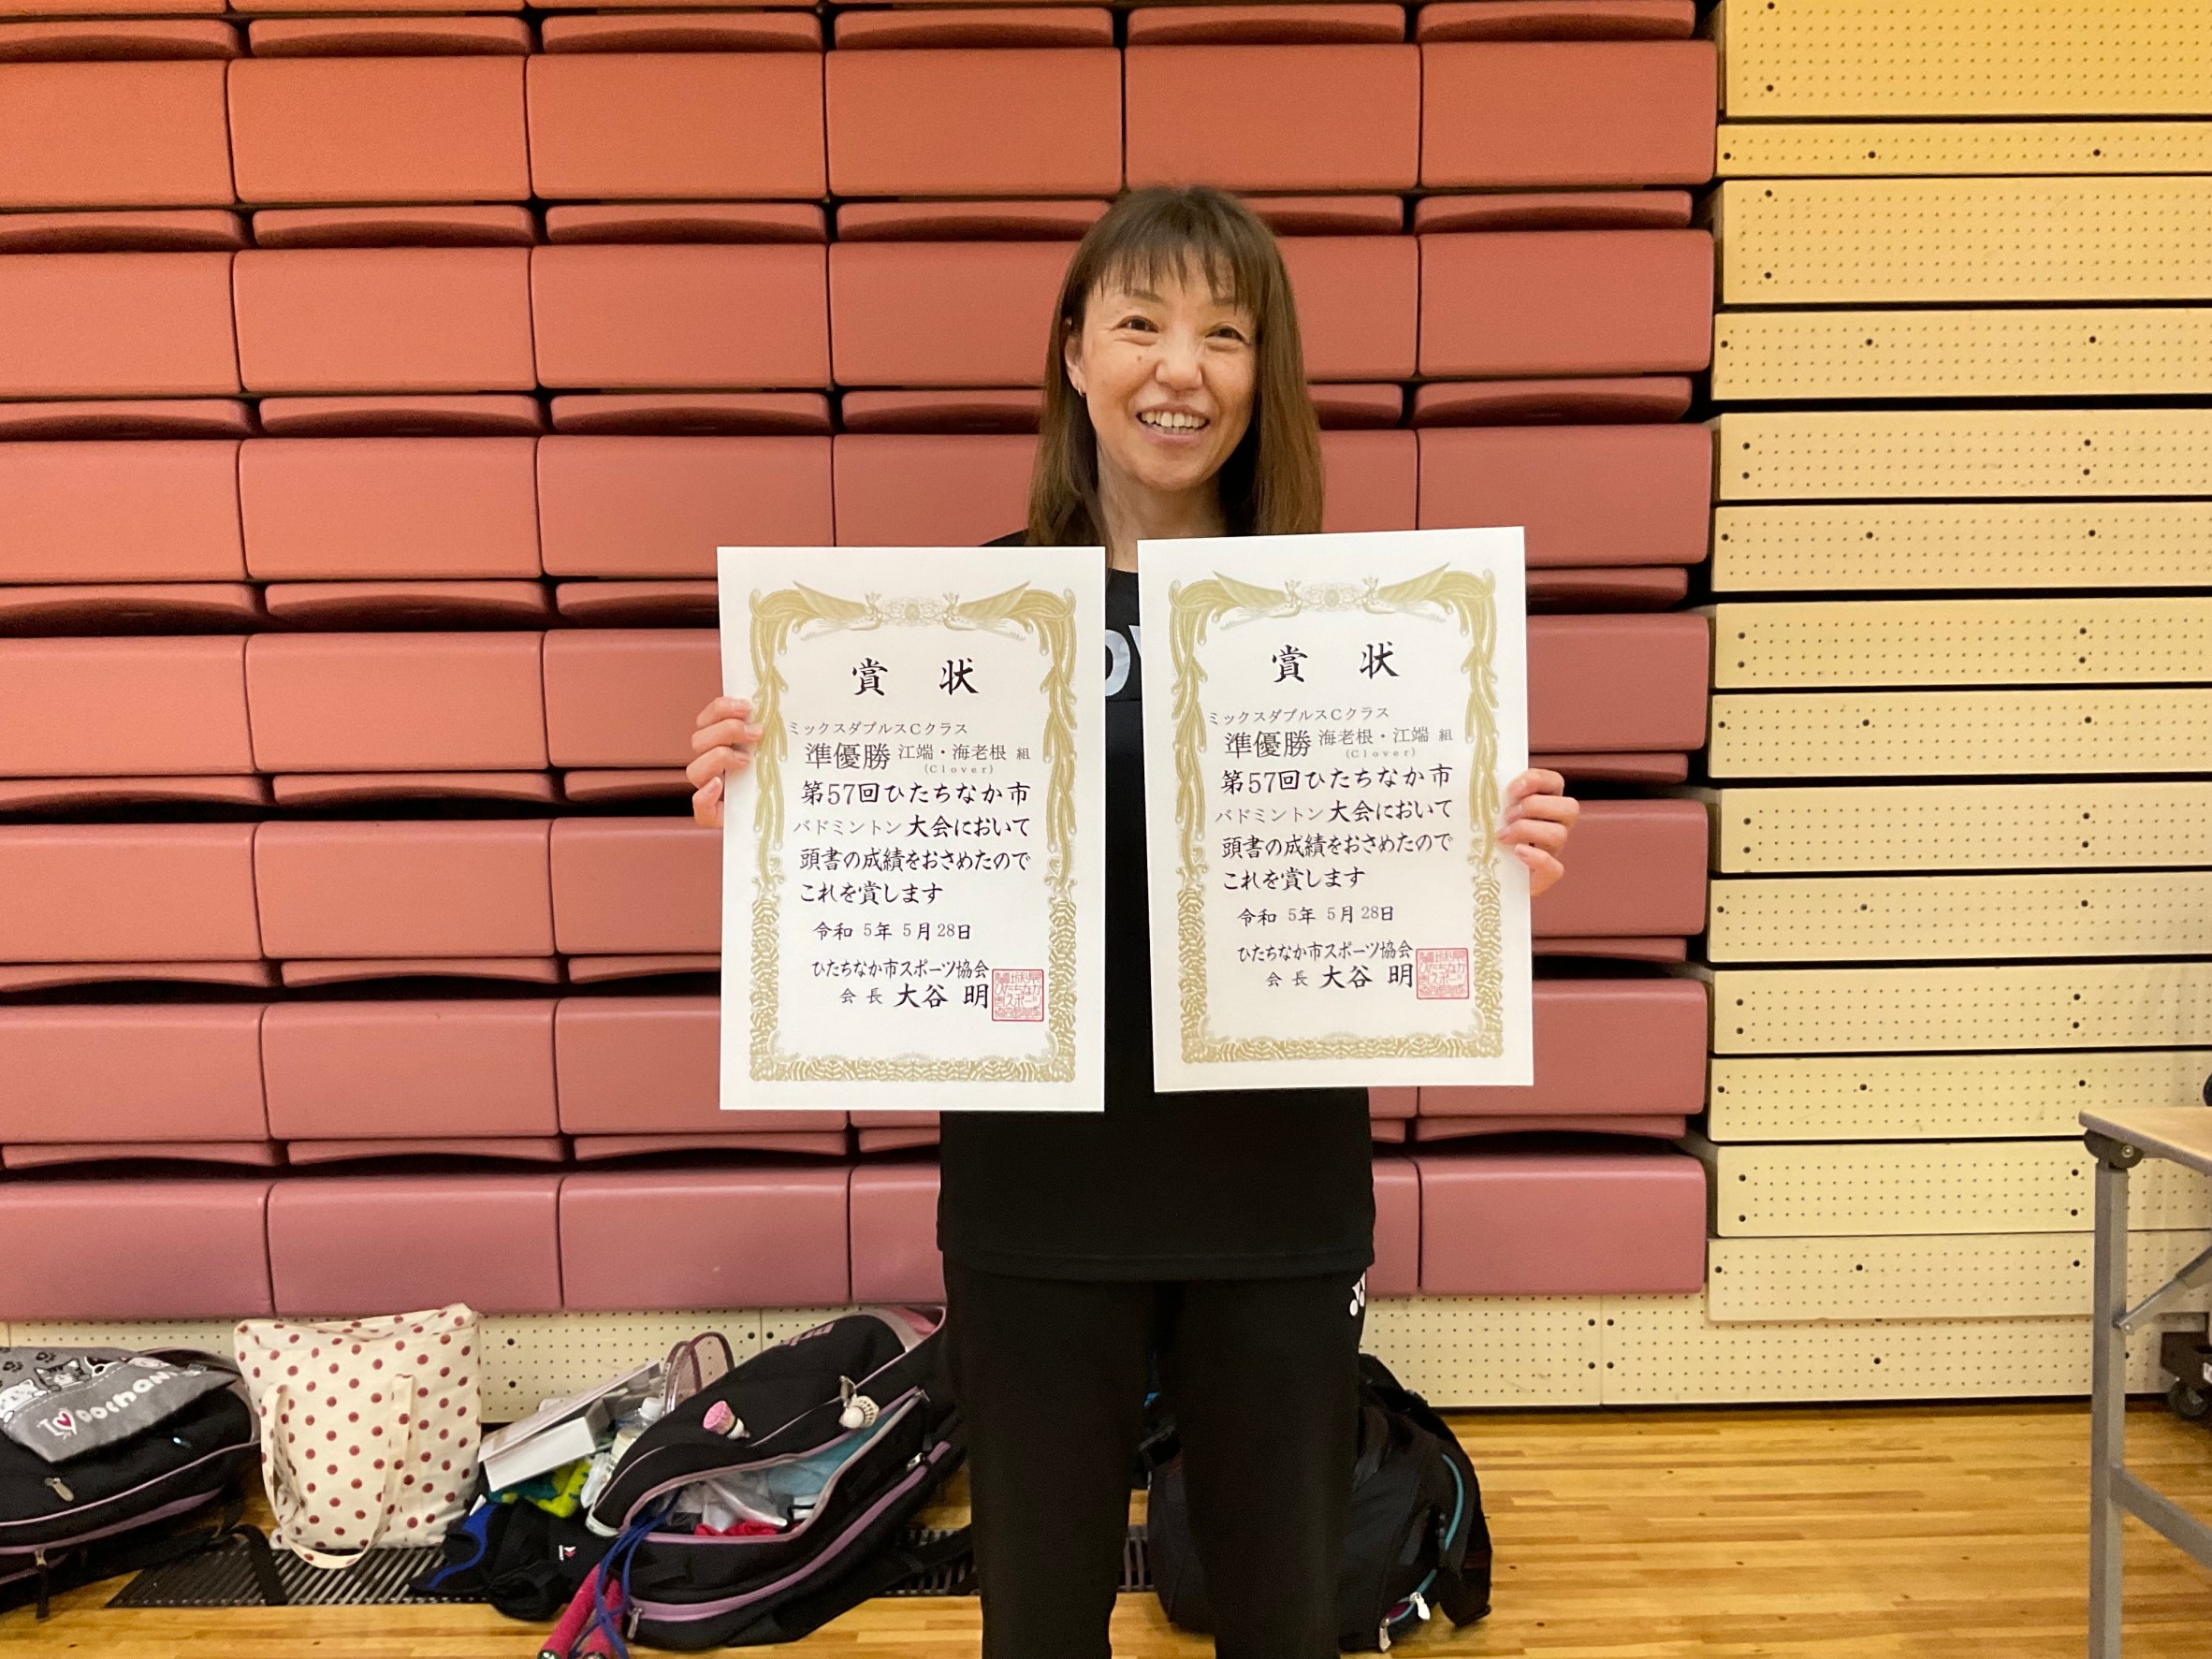 賞 状
ミックスダブルスCクラス
準優勝 江端・海老根 組
(Clover)
第57回ひたちなか市
バドミントン大会において
頭書の成績をおさめたので
これを賞します
令和 5年 5月28日
ひたちなか市スポーツ協会
会長 大谷 明
賞 状
ミックスダブルスCクラス
準優勝 海老根・江端 組
(Clover)
第57回ひたちなか市
バドミントン大会において
頭書の成績をおさめたので
これを賞します
令和 5年 5月28日
ひたちなか市スポーツ協会
会長 大谷 明
I♥POCHAN